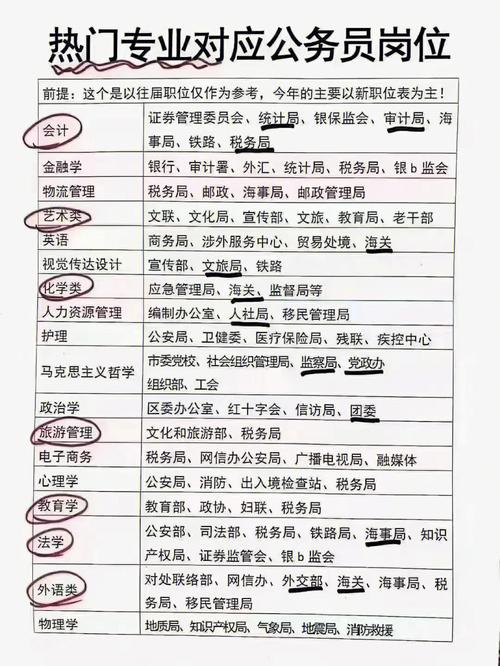 热门专业对应公务员岗位
前提：这个是以往届职位仅作为参考，今年的主要以新职位表为主！
会计 证券管理委员会、统计局、银保监会、审计局、海
事局、铁路、税务局
金融学 银行、审计署、外汇、统计局、税务局、银b监会
物流管理 税务局、邮政、海事局、邮政管理局
艺术类 文联、文化局、宣传部、文旅、教育局、老干部
英语 商务局、涉外服务中心、贸易处境、海关
视觉传达设计 宣传部、文旅局、铁路
化学类 应急管理局、海关、监督局等
人力资源管理 编制办公室、人社局、移民管理局
护理 公安局、卫健委、医疗保险局、残联、疾控中心
马克思主义哲学 市委党校、社会组织管理局、监察局、党政办
组织部、工会
政治学 区委办公室、红十字会、信访局、团委
旅游管理 文化和旅游部、税务局
电子商务 税务局、网信办公安局、广播电视局、融媒体
心理学 公安局、消防、出入境检查站、税务局
教育学 教育部、政协、妇联、税务局
法学 公安部、司法部、税务局、铁路局、海事局、知识
产权局、证券监管会、银b监会
外语类 对处联络部、网信办、外交部、海关、海事局、税
务局、移民管理局
物理学 地质局、知识产权局、气象局、地震局、消防救援